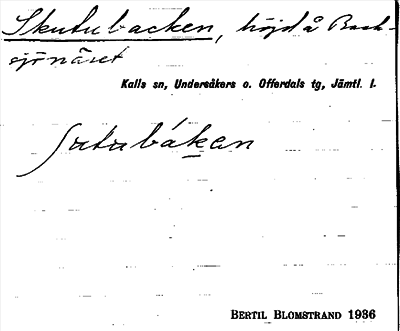 Skutubacken, höjd å Back-
sjönäset
Kalls sn, Undersåkers o. Offerdals tg, Jämtl. l.
ʃutubákan
BERTIL BLOMSTRAND 1936